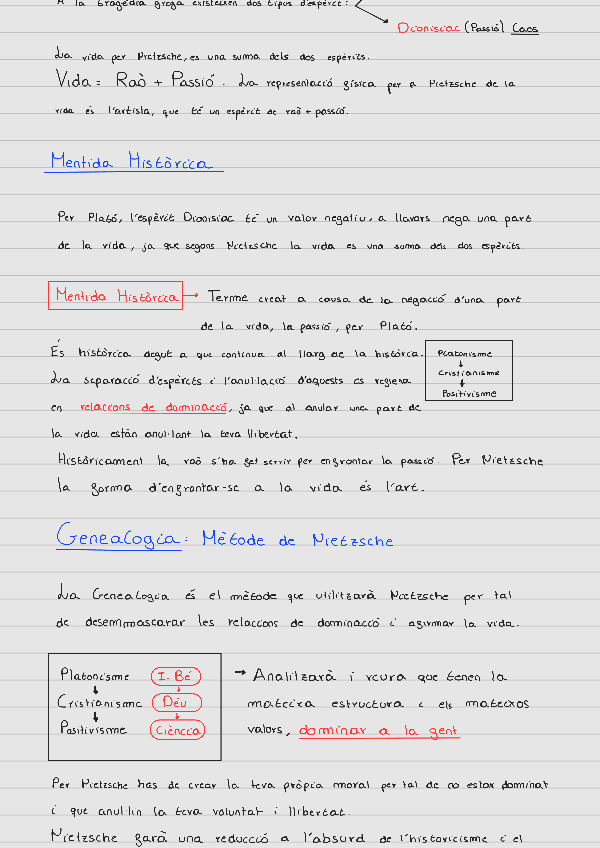 A la tragèdia grega existeixen dos tipus d'esperit:
Dionisíac (Passió) Caos
La vida per Nietzsche, es una suma dels dos espèrits.
Vida = Raò + Passió. La representació física per a Nietzsche de la
vida és l'artista, que té un espèrit de raò + passió.
Mentida Històrica
Per Plató, l'espèrit Dionisiac té un valor negatiu, a llavors nega una part
de la vida, ja que segons Nietzsche la vida es una suma dels dos espèrits
Mentida Històrica → Terme creat a causa de la negacció d'una part
de la vida, la passió, per Plató.
És històrica degut a que continua al llarg de la històrica.
Platonisme
↓
Cristianisme
↓
Positivisme
La separació d'espèrits i l'anul·lació d'aquests es refleixa
en relaccions de dominacció, ja que al anular una part de
la vida están anul·lant la teva llibertat.
Històricament la raò s'ha fet servir per enfrontar la passió. Per Nietzsche
la forma d'enfrontar-se a la vida és l'art.
Genealogia: Mètode de Nietzsche
La Genealogia és el mètode que utilitzarà Nietzsche per tal
de desemmascarar les relaccions de dominacció i afirmar la vida.
Platonisme I. Bé
↓ ↓
Cristianisme Déu
↓ ↓
Positivisme Ciència
→ Analitzarà i veura que tenen la
mateixa estructura i els mateixos
valors, dominar a la gent
Per Nietzsche has de crear la teva pròpia moral per tal de no estar dominat
i que anul·lin la teva voluntat i llibertat.
Nietzsche farà una reducció a l'absurd de l'historicisme i el